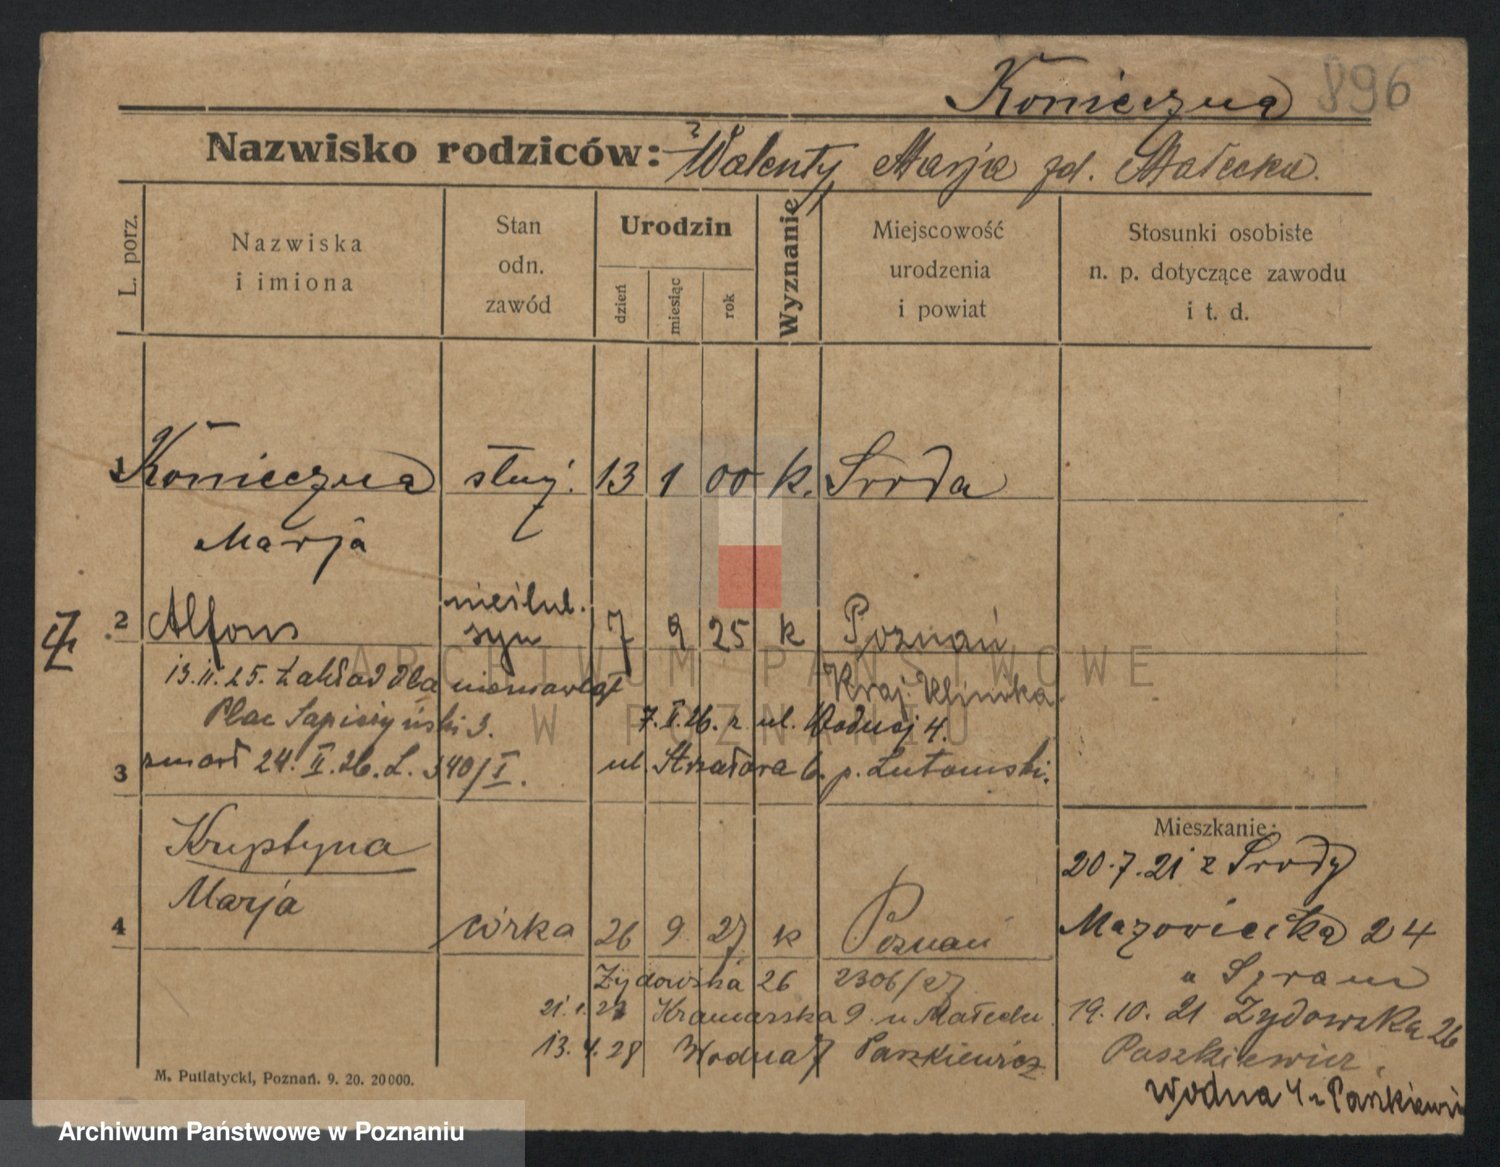 Konieczna 896
Nazwisko rodziców: Walenty, Marja zd. Małecka.
L. porz.
Nazwiska
i imiona
Stan
odn.
zawód
Urodzin
dzień
miesiąc
rok
Wyznanie
Miejscowość
urodzenia
i powiat
Stosunki osobiste
n. p. dotyczące zawodu
i t. d.
1 Konieczna służ. 13 1 00 k. Sroda
Marja
2 Alfons nieślub. syn 7 9 25 k Poznań
Kraj. Klinika.
13.11.25. Zakład dla niemowląt
Plac Sapieżyński 3.
7. I. 26. z ul. Wodnej 4.
zmarł 24. II. 26. L. 340/I.
ul. Strzałowa 6. p. Lutomski.
3
Krystyna
Marja
4 córka 26 9. 27 k Poznań
Żydowska 26 2306/27.
21.1.28 Kramarska 9. u Małecki
13.4.28 Wodna 7 Paszkiewicz
Mieszkanie:
20.7.21 z Srody
Mazowiecka 24
u
19.10.21 Żydowska 26
Paszkiewicz.
Wodna 4
M. Putiatycki, Poznań. 9. 20. 20000.
ARCHIWUM PAŃSTWOWE
W POZNANIU
Archiwum Państwowe w Poznaniu